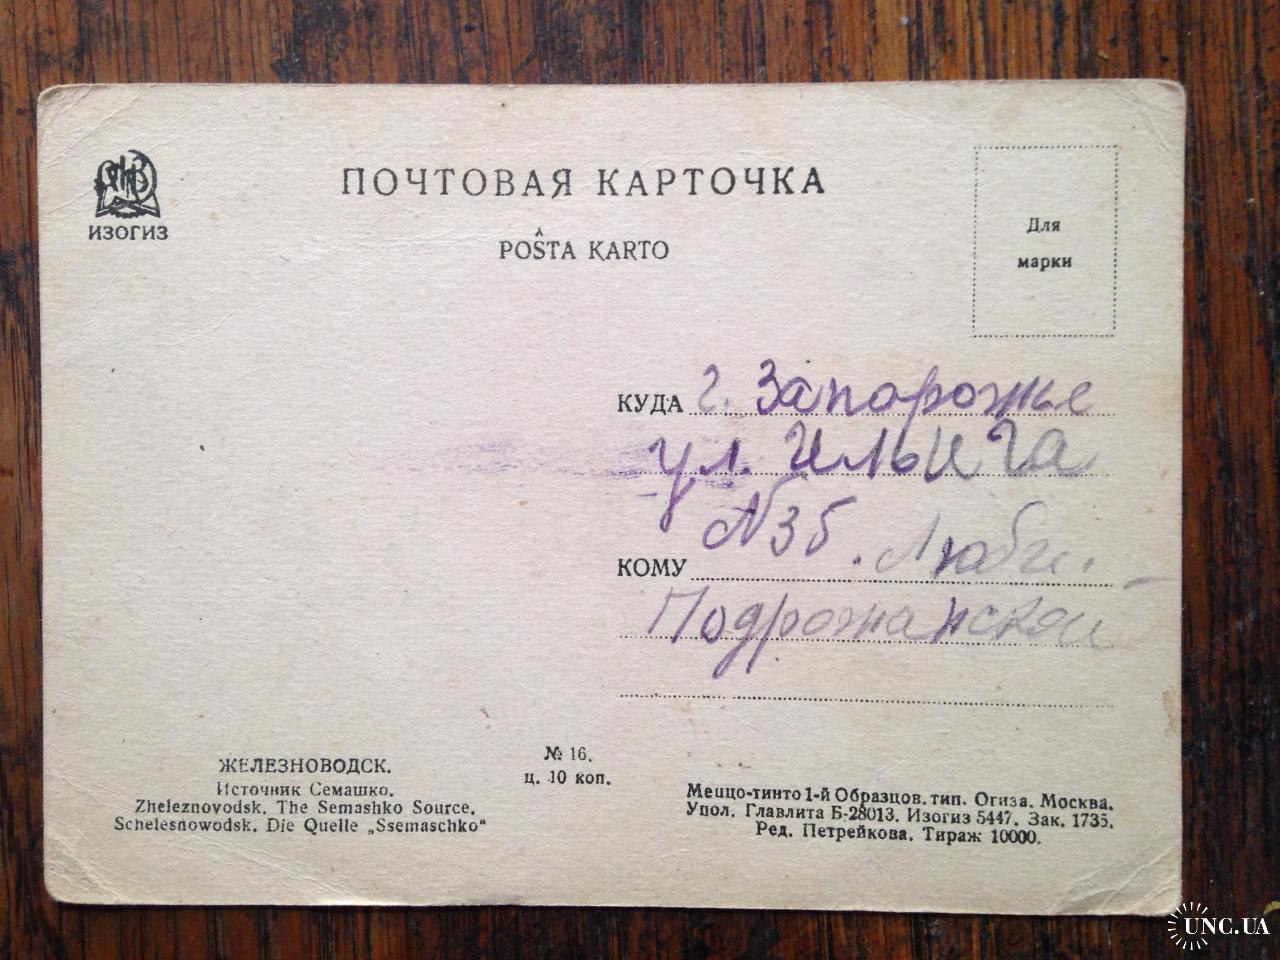 ИЗОГИЗ
ПОЧТОВАЯ КАРТОЧКА
POŜTA KARTO
Для
марки
КУДА г. Запорожье
ул. Ильича
№35. Любе
КОМУ
Подрожанской
ЖЕЛЕЗНОВОДСК.
Источник Семашко.
Zheleznovodsk. The Semashko Source.
Schelesnowodsk. Die Quelle „Ssemaschko“
№ 16.
ц. 10 коп.
Меццо-тинто 1-й Образцов. тип. Огиза. Москва.
Упол. Главлита Б-28013. Изогиз 5447. Зак. 1735.
Ред. Петрейкова. Тираж 10000.
UNC.UA